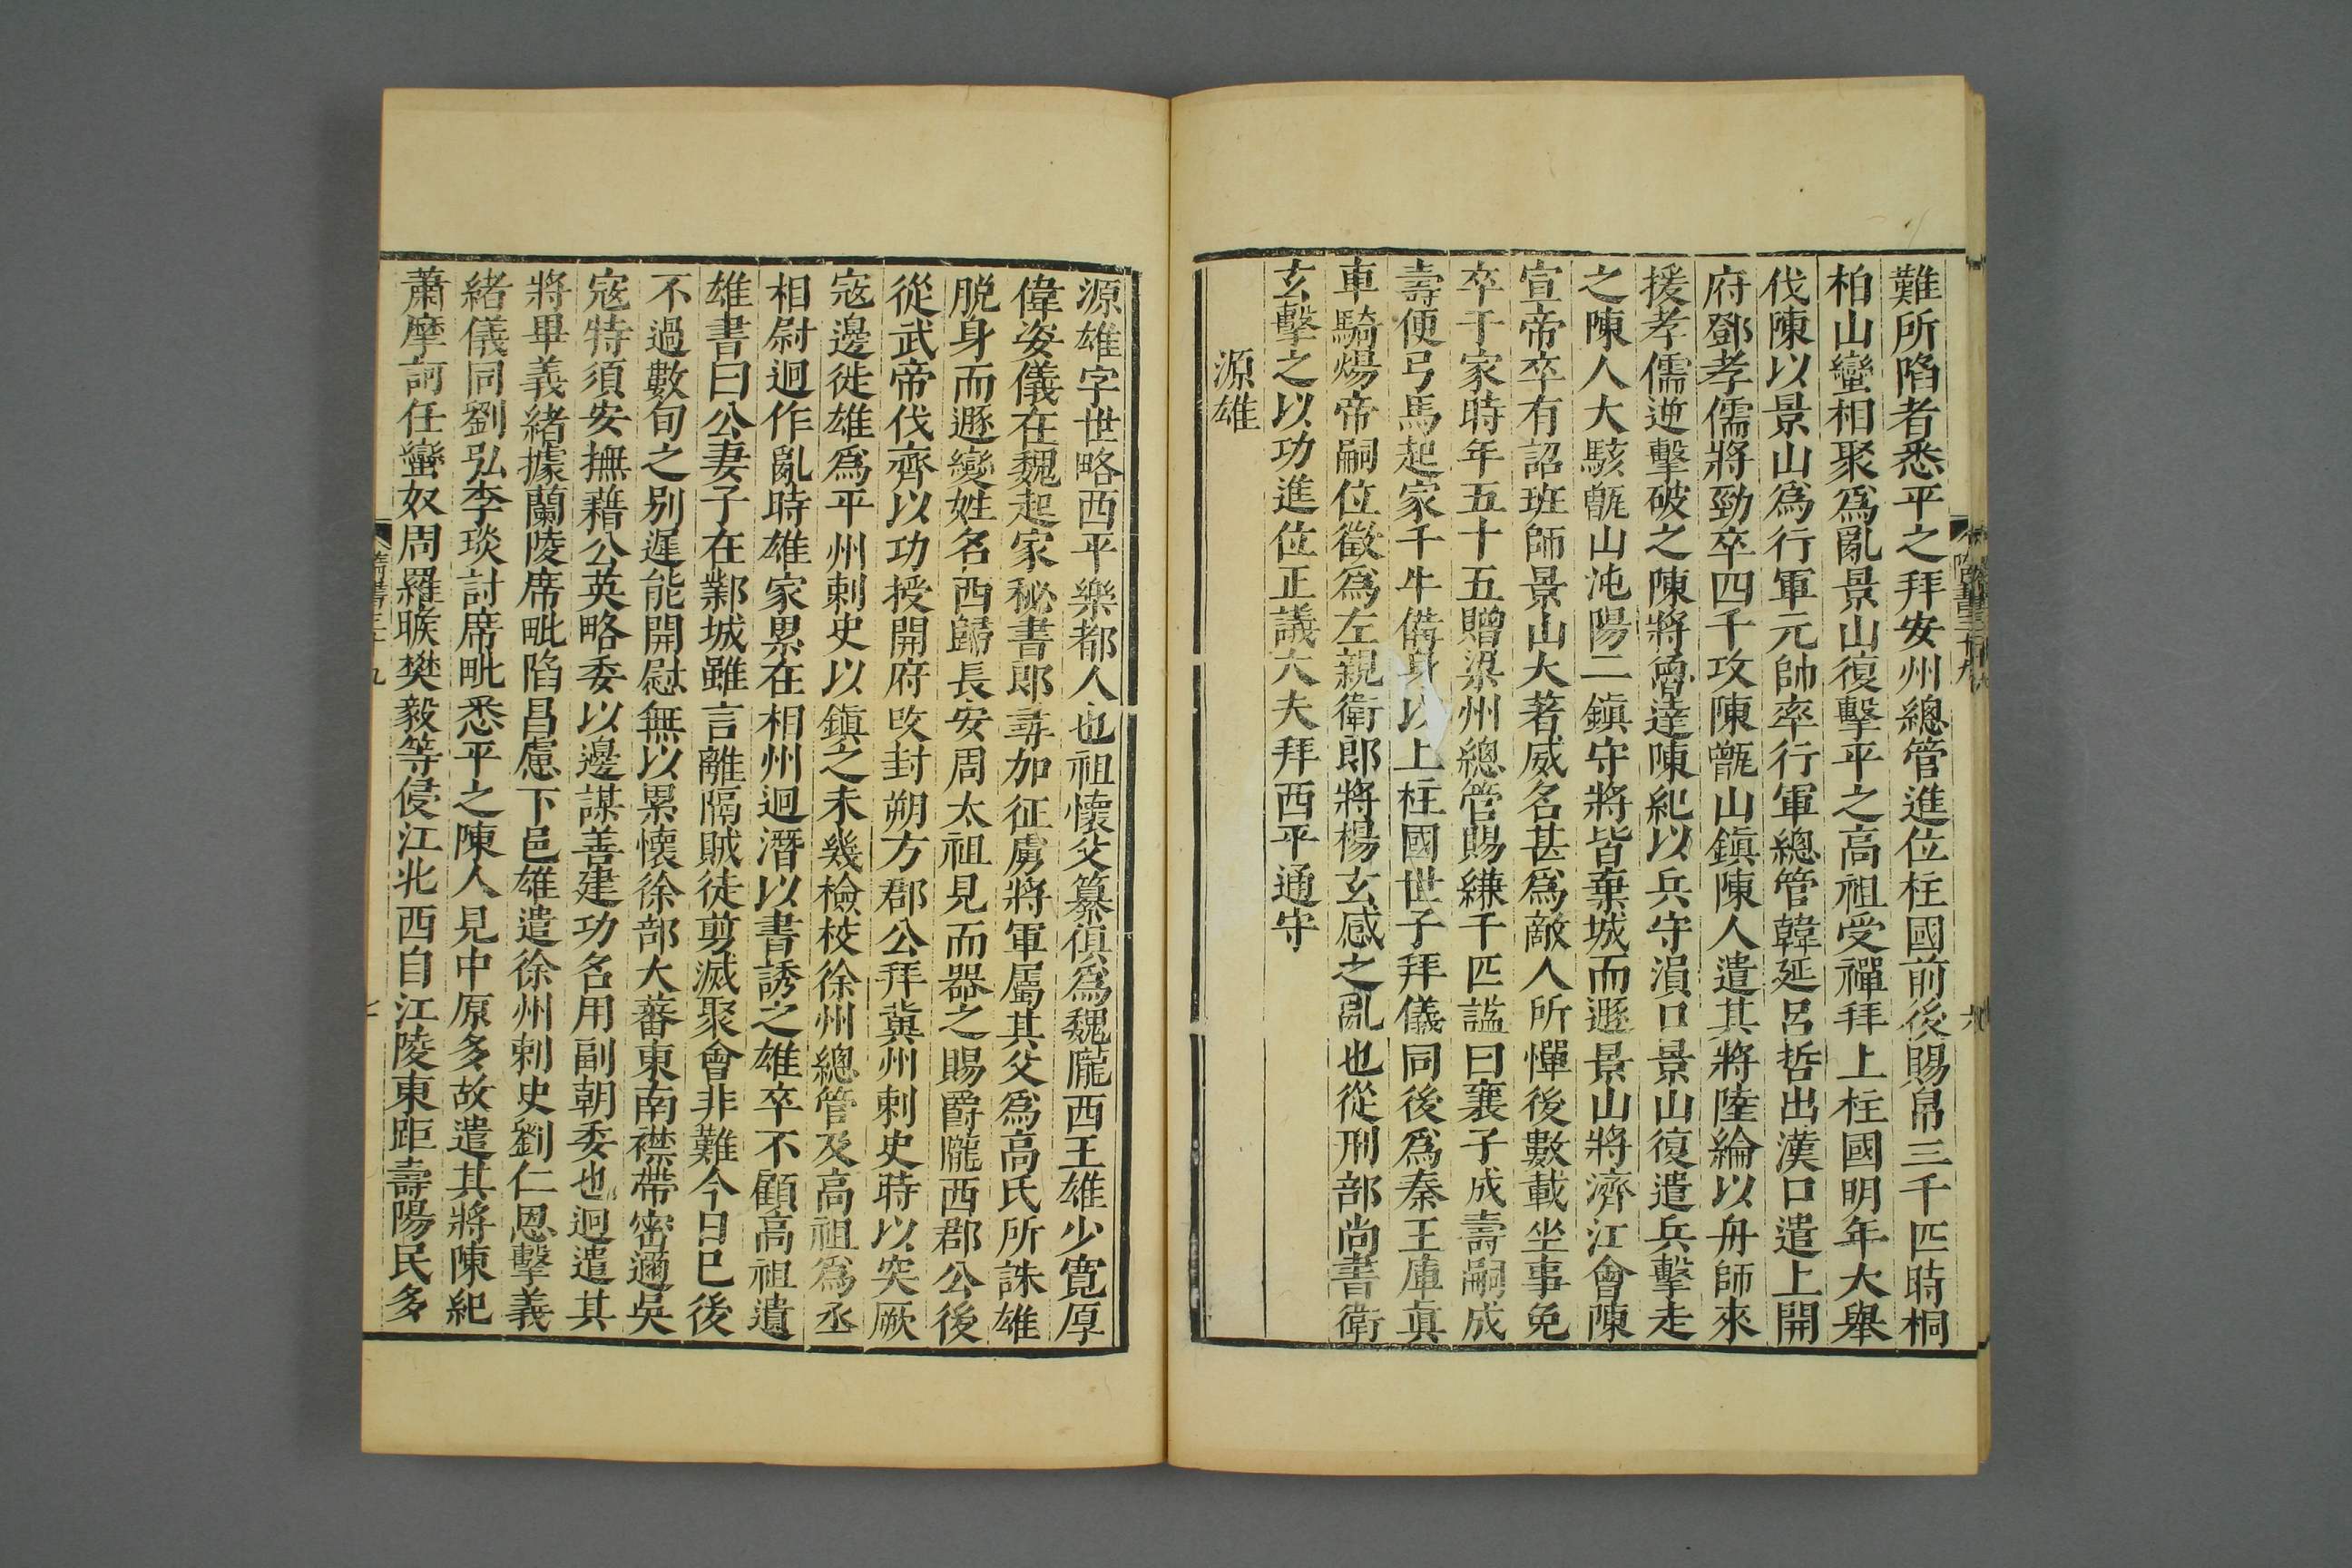 難所陷者悉平之拜安州總管進位柱國前後賜帛三千匹時桐
柏山蠻相聚爲亂景山復擊平之高祖受禪拜上柱國明年大舉
伐陳以景山爲行軍元帥率行軍總管韓延呂哲出漢口遣上開
府鄧孝儒將勁卒四千攻陳甑山鎮陳人遣其將陸綸以舟師來
援孝儒逆擊破之陳將魯達陳紀以兵守溳口景山復遣兵擊走
之陳人大駭甑山沌陽二鎮守將皆棄城而遯景山將濟江會陳
宣帝卒有詔班師景山大著威名甚爲敵人所憚後數載坐事免
卒于家時年五十五贈梁州總管賜縑千匹諡曰襄子成壽嗣成
壽便弓馬起家千牛備身以上柱國世子拜儀同後爲秦王庫眞
車騎煬帝嗣位徵爲左親衛郎將楊玄感之亂也從刑部尚書衛
玄擊之以功進位正議大夫拜西平通守
源雄
源雄字世略西平樂都人也祖懷父纂俱爲魏隴西王雄少寬厚
偉姿儀在魏起家秘書郎尋加征虜將軍屬其父爲高氏所誅雄
脫身而遯變姓名西歸長安周太祖見而器之賜爵隴西郡公後
從武帝伐齊以功授開府改封朔方郡公拜冀州刺史時以突厥
寇邊徙雄爲平州刺史以鎮之未幾檢校徐州總管及高祖爲丞
相尉迥作亂時雄家累在相州迥潛以書誘之雄卒不顧高祖遺
雄書曰公妻子在鄴城雖言離隔賊徒剪滅聚會非難今日巳後
不過數旬之別遲能開慰無以累懷徐部大蕃東南襟帶密邇吳
寇特須安撫藉公英略委以邊謀善建功名用副朝委也迥遣其
將畢義緒據蘭陵席毗陷昌慮下邑雄遣徐州刺史劉仁恩擊義
緒儀同劉弘李琰討席毗悉平之陳人見中原多故遣其將陳紀
蕭摩訶任蠻奴周羅睺樊毅等侵江北西自江陵東距壽陽民多